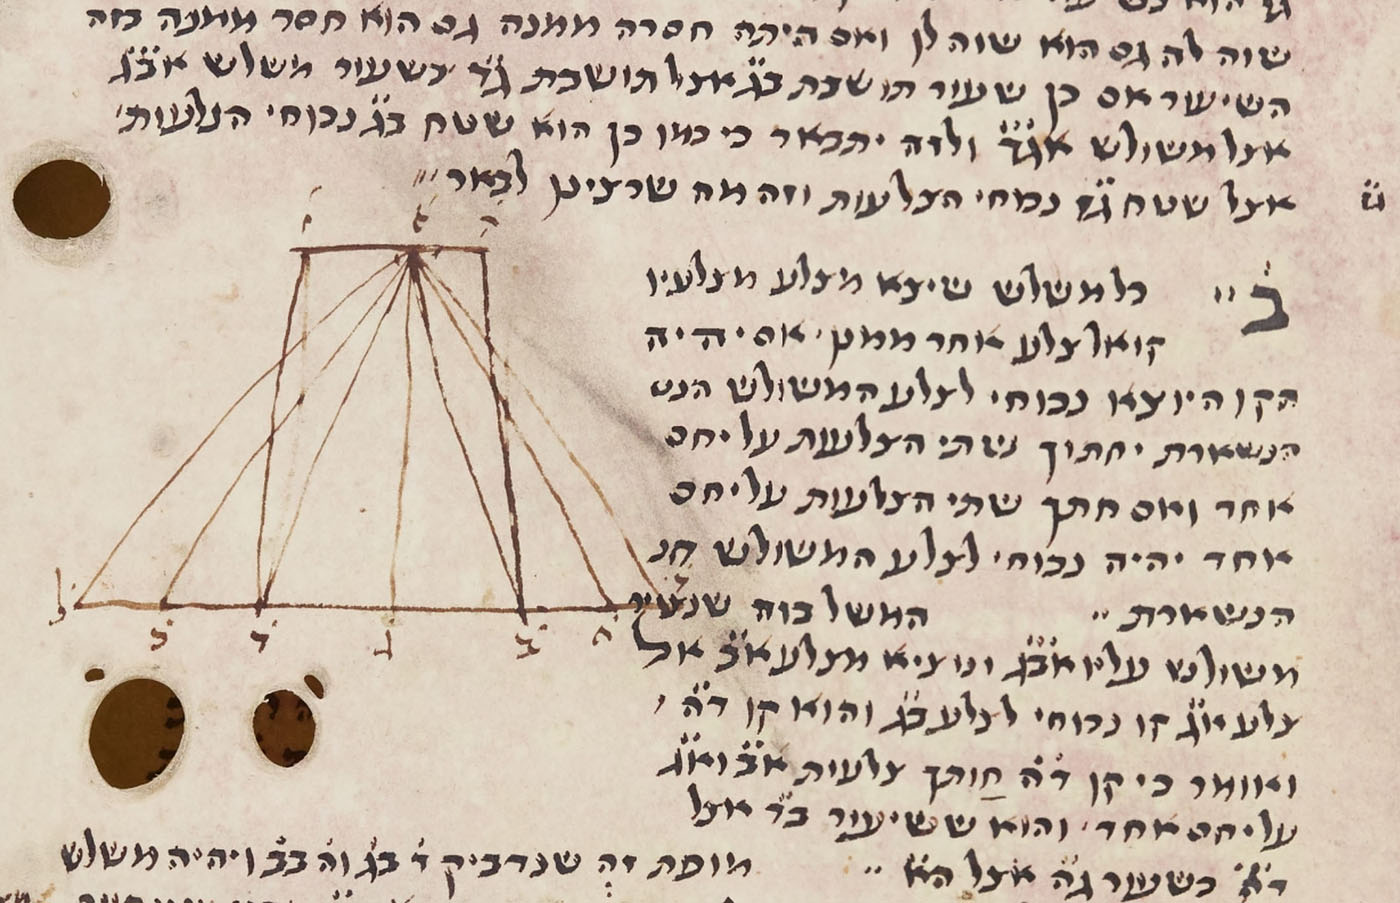 שוה לה גם הוא שוה לו ואם היתה חסרה ממנה גם הוא חסר ממנה בזה
השיעור אם כן שעור תושבת בג אצל תושבת גד כשעור משלש אבג
אצל משולש אגד ולזה יתבאר כי כמו כן הוא שטח בג נכוחי הצלעות
אצל שטח גד נכוחי הצלעות וזה מה שרצינו לבאר
ב כל משלש שיצא מצלע מצלעיו
קו אל צלע אחר ממנו אם יהיה
הקו היוצא נכוחי לצלע המשולש הנש
הנשארת יחתוך שתי הצלעות על יחס
אחד ואם חתך שתי הצלעות על יחס
אחד יהיה נכוחי לצלע המשולש הנ
הנשארת המשל בזה שנשיר
משולש עליו אבג ונוציא מצלע אב אל
צלע אג קו נכוחי לצלע בג והוא קו דה
ואומר כי קו דה חותך צלעות אב ואג
על יחס אחד והוא ששיעור בד אצל
דא כשעור גה אצל הא
מופת זה שנדביק ד בג וה בב ויהיה משלש
ה
ז
ד
ג
ב
ח